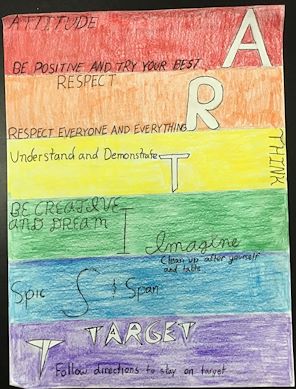 ATTITUDE
A
BE POSITIVE AND TRY YOUR BEST
RESPECT
R
RESPECT EVERYONE AND EVERYTHING
THINK
Understand and Demonstrate
T
BE CREATIVE
AND DREAM
I
Imagine
Clean up after yourself
and table
Spic
S
& Span
TARGET
T
Follow directions to stay on target